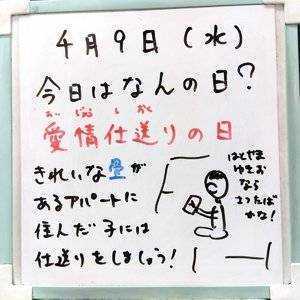 4月9日(水)
今日はなんの日?
愛情仕送りの日
きれいな畳が
あるアパートに
住んだ子には
仕送りをしましょう!
はとやま
ゆきお
なら
さったば
かな!